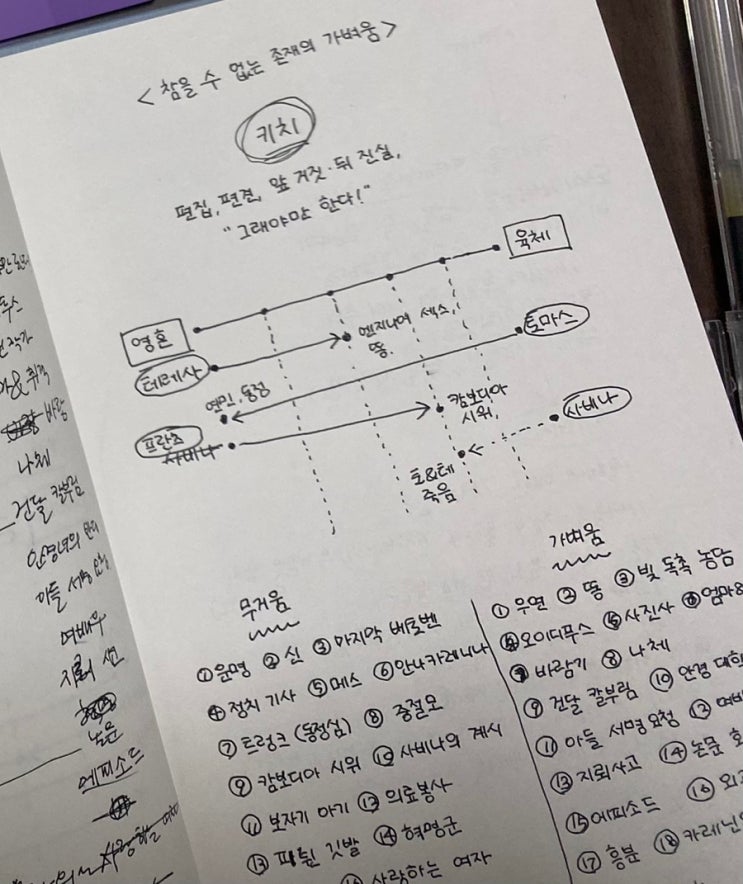 <참을 수 없는 존재의 가벼움>
키치
편집, 편견, 앞 거짓·뒤 진실,
"그래야만 한다!"
육체
영혼
엔지니어 섹스,
똥.
토마스
테레사
연민, 동정
캄보디아
시위,
사비나
프란츠
사비나
토&테
죽음
무거움
① 운명 ② 신 ③ 마지막 베토벤
④ 정치 기사 ⑤ 메스 ⑥ 안나카레니나
⑦ 트렁크 (동정심) ⑧ 중절모
⑨ 캄보디아 시위 ⑩ 사비나의 계시
⑪ 보자기 아기 ⑫ 의료봉사
⑬ 찢어진 깃발 ⑭ 혁명군
사랑하는 여자
가벼움
① 우연 ② 똥 ③ 빚 독촉 농담
④ 오이디푸스 ⑤ 사진사 ⑥ 엄마&
⑦ 바람기 ⑧ 나체
⑨ 건달 칼부림 ⑩ 안경
⑪ 아들 서명 요청 ⑫
⑬ 지뢰사고 ⑭ 논문
⑮ 에피소드 ⑯
⑰ 흥분 ⑱ 카레닌
작가
나체
건달 칼부림
아들 서명 요청
여배우
논문
에피소드